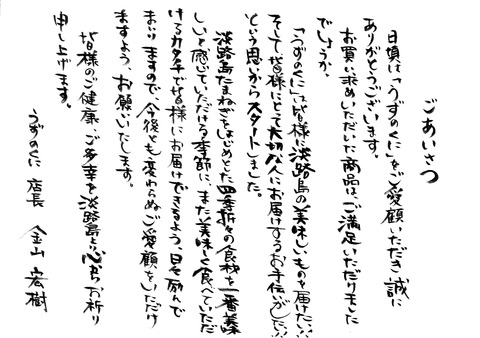 ごあいさつ
日頃は「うずのくに」をご愛顧いただき誠に
ありがとうございます。
お買い求めいただいた商品は、ご満足いただけました
でしょうか。
「うずのくに」は皆様に淡路島の美味しいものを届けたい…
そして皆様にとって大切な人にお届けするお手伝いがしたい…
という思いからスタートしました。
淡路島たまねぎをはじめとした四季折々の食材を一番美味
しいと感じていただける季節に、また美味しく食べていただ
けるカタチで皆様にお届けできるよう、日々励んで
まいりますので今後とも変わらぬご愛顧をいただけ
ますよう、お願いいたします。
皆様のご健康、ご多幸を淡路島より心からお祈り
申し上げます。
うずのくに 店長 金山 宏樹